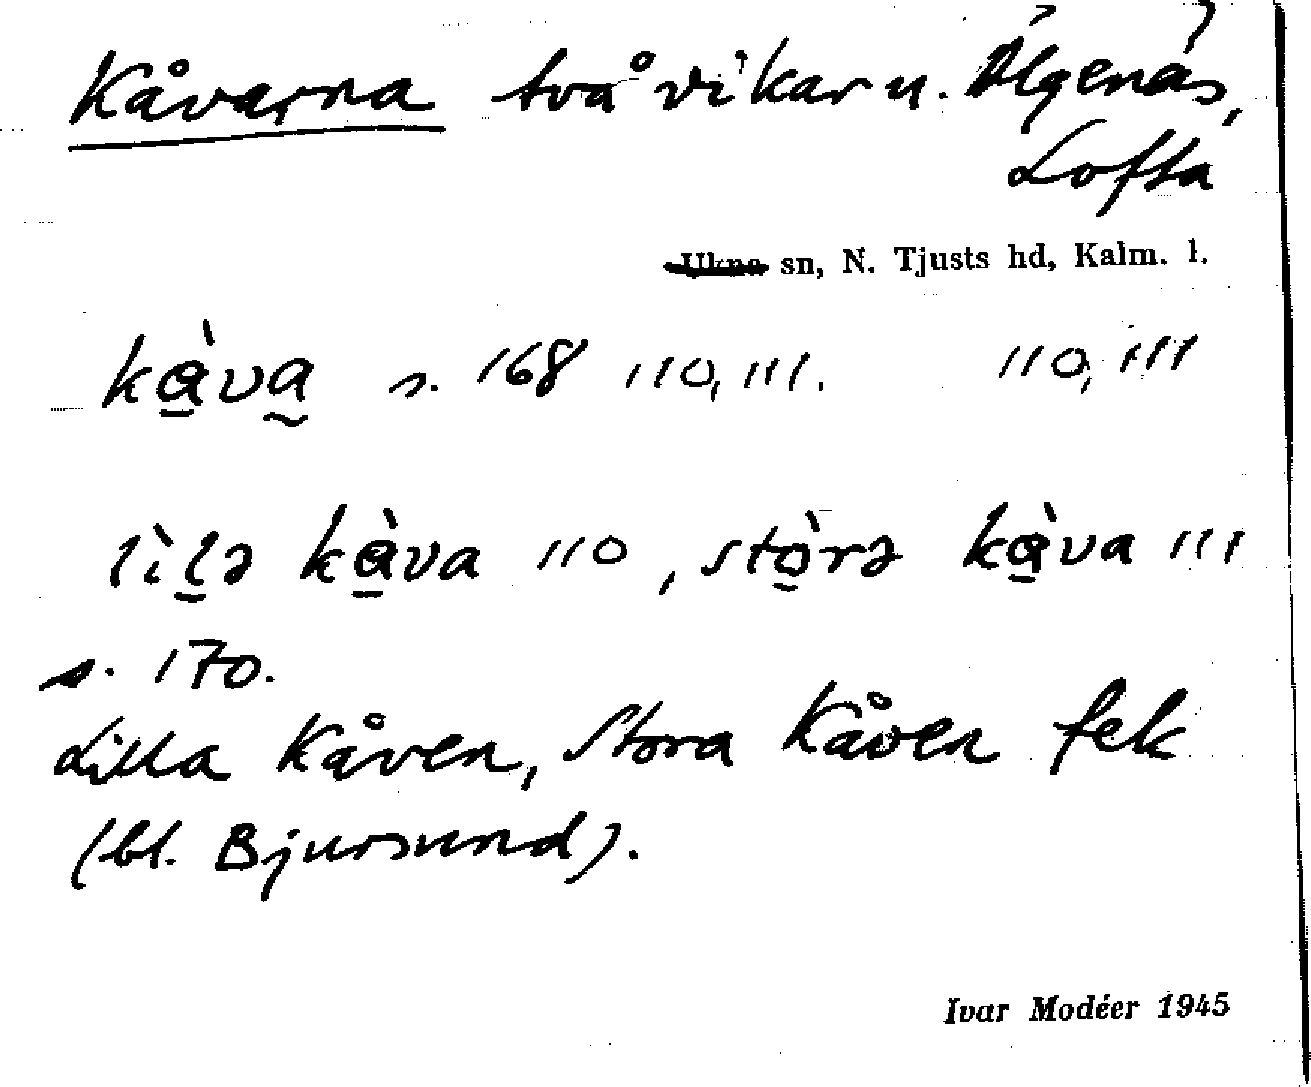 Kåvarna två vikar u. Älgenäs,
Lofta
Ukna sn, N. Tjusts hd, Kalm. l.
kàva s. 168 110, 111. 110, 111
lìlə kàva 110, stòrə kàva 111
s. 170.
Lilla Kåven, Stora Kåven fek
(bl. Bjursund).
Ivar Modéer 1945